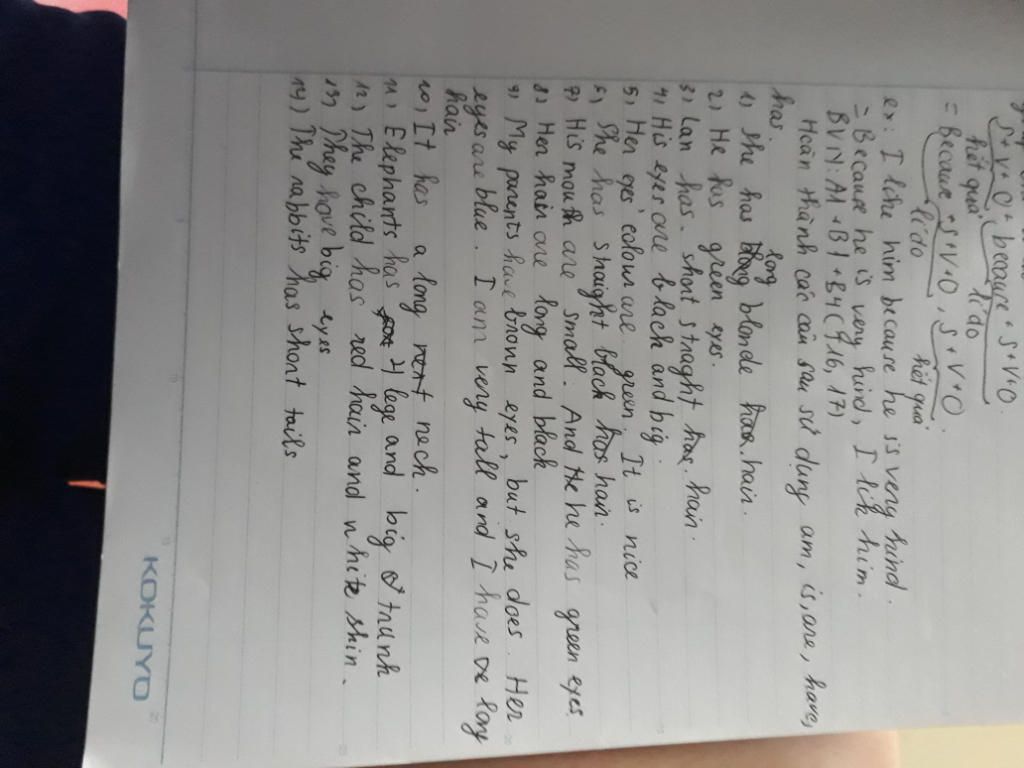 S + V + O + because + S + V + O.
kết quả lí do
= Because + S + V + O, S + V + O
lí do kết quả
ex: I like him because he is very kind.
= Because he is very kind, I lik him.
BVN: A1 + B1 + B4 (T. 16, 17)
Hoàn thành các câu sau sử dụng am, is, are, have,
has
1) She has long blonde hair.
2) He has green eyes.
3) Lan has short straght hair.
4) His eyes are black and big.
5) Her eyes' colour are green. It is nice
6) She has straight black hair.
7) His mouth are small. And he has green eyes.
8) Her hair are long and black
9) My parents have brown eyes, but she does. Her
eyes are blue. I am very tall and I have long
hair
10) It has a long neck.
11) Elephants has 4 legs and big trunk
12) The child has red hair and white skin.
13) They have big eyes
14) The rabbits has short tails
KOKUYO